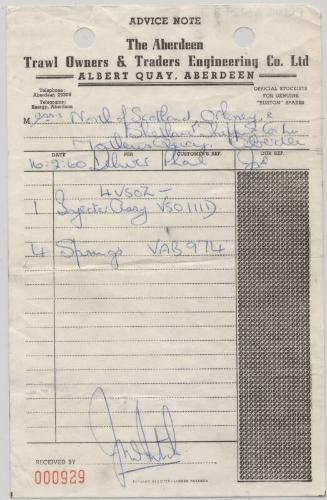 ADVICE NOTE
The Aberdeen
Trawl Owners & Traders Engineering Co. Ltd
ALBERT QUAY, ABERDEEN
Telephone:
Aberdeen
Telegrams:
Energy, Aberdeen
OFFICIAL STOCKISTS
FOR GENUINE
"RUSTON" SPARES
Messrs North of Scotland, Orkney &
Shetland Shipp Co Ltd
Matthews Quay, Aberdeen
DATE PER CUSTOMER'S REF. OUR REF.
16-2-60 Deliver
4VSCZ -
1 Injector Assy VSO.111D
4 Springs VAB 974
RECEIVED BY
000929